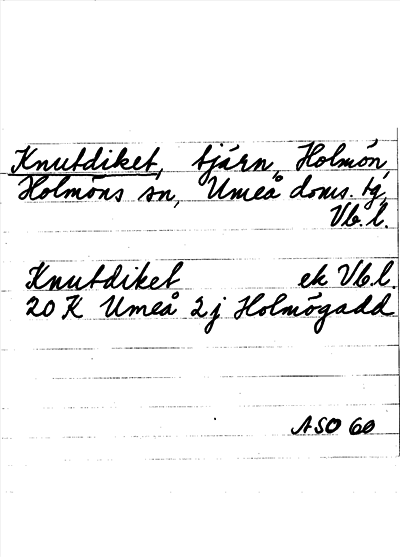 Knutdiket, tjärn, Holmön,
Holmöns sn, Umeå doms. tg,
Vb. l.
Knutdiket ek Vb. l.
20 K Umeå 2 j Holmögadd
ASO 60